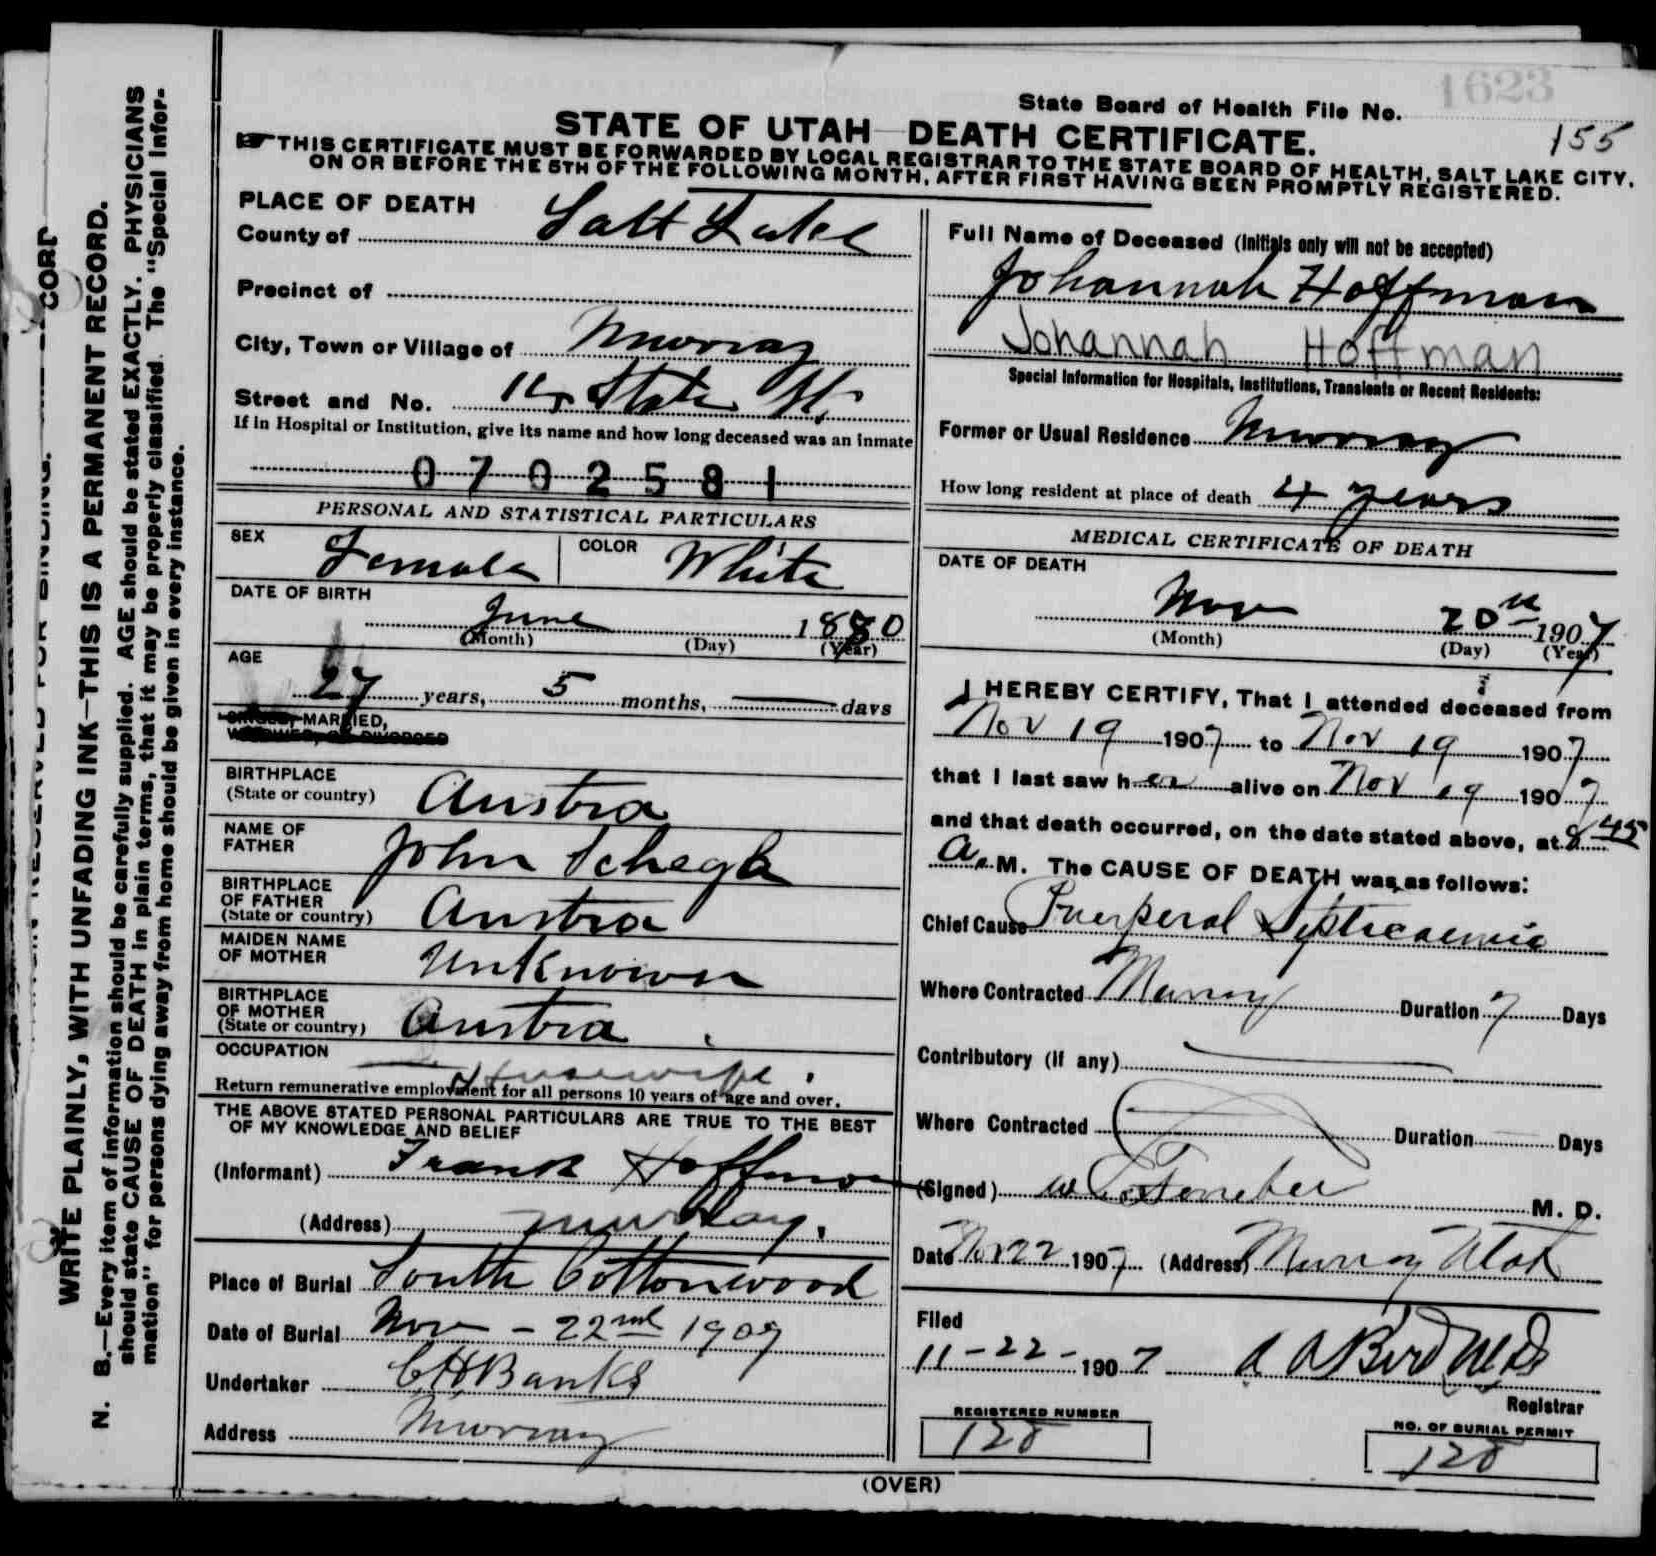 1623
State Board of Health File No.
155
STATE OF UTAH—DEATH CERTIFICATE.
☞ THIS CERTIFICATE MUST BE FORWARDED BY LOCAL REGISTRAR TO THE STATE BOARD OF HEALTH, SALT LAKE CITY,
ON OR BEFORE THE 5TH OF THE FOLLOWING MONTH, AFTER FIRST HAVING BEEN PROMPTLY REGISTERED.
WRITE PLAINLY, WITH UNFADING INK—THIS IS A PERMANENT RECORD.
N. B.—Every item of information should be carefully supplied. AGE should be stated EXACTLY. PHYSICIANS
should state CAUSE OF DEATH in plain terms, that it may be properly classified. The "Special Infor-
mation" for persons dying away from home should be given in every instance.
PLACE OF DEATH
County of Salt Lake
Precinct of
City, Town or Village of Murray
Street and No. State St.
If in Hospital or Institution, give its name and how long deceased was an inmate
0702581
PERSONAL AND STATISTICAL PARTICULARS
SEX Female COLOR White
DATE OF BIRTH
June 1880
(Month) (Day) (Year)
AGE
27 years, 5 months, — days
SINGLE, MARRIED,
WIDOWED, OR DIVORCED
BIRTHPLACE
(State or country) Austra
NAME OF
FATHER John Schegla
BIRTHPLACE
OF FATHER
(State or country) Austra
MAIDEN NAME
OF MOTHER Unknown
BIRTHPLACE
OF MOTHER
(State or country) Austra
OCCUPATION
Housewife
Return remunerative employment for all persons 10 years of age and over.
THE ABOVE STATED PERSONAL PARTICULARS ARE TRUE TO THE BEST
OF MY KNOWLEDGE AND BELIEF
(Informant) Frank Hoffman
(Address) Murray.
Place of Burial South Cottonwood
Date of Burial Nov - 22nd 1907
Undertaker C H Banks
Address Murray
Full Name of Deceased (Initials only will not be accepted)
Johannah Hoffman
Johannah Hoffman
Special Information for Hospitals, Institutions, Transients or Recent Residents:
Former or Usual Residence Murray
How long resident at place of death 4 years
MEDICAL CERTIFICATE OF DEATH
DATE OF DEATH
Nov 20th 1907
(Month) (Day) (Year)
I HEREBY CERTIFY, That I attended deceased from
Nov 19 1907 to Nov 19 1907
that I last saw her alive on Nov 19 1907
and that death occurred, on the date stated above, at 8 45
A. M. The CAUSE OF DEATH was as follows:
Chief Cause Puerperal Septicaemia
Where Contracted Murray Duration 7 Days
Contributory (if any)
Where Contracted Duration Days
(Signed) M. D.
Date Nov 22 1907 (Address) Murray Utah
Filed
11-22-1907 Bird MD
Registrar
REGISTERED NUMBER
128
NO. OF BURIAL PERMIT
128
(OVER)